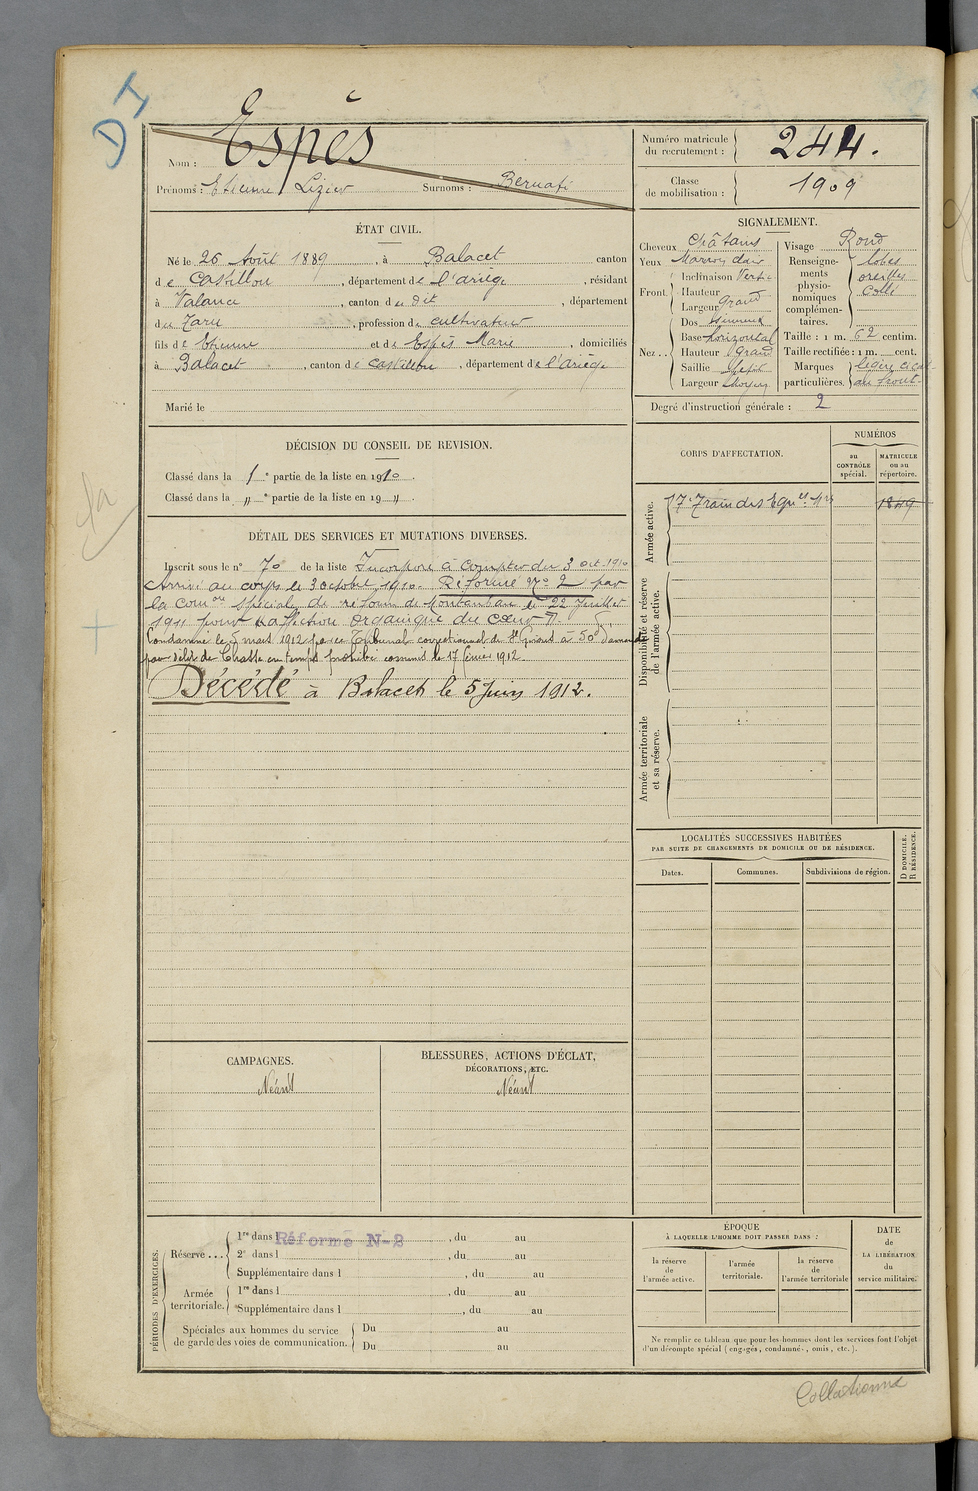 DI
Nom : Espès
Prénoms : Etienne Lizier Surnoms : Bernafi
Numéro matricule du recrutement : 244.
Classe de mobilisation : 1909
ÉTAT CIVIL.
Né le 26 Août 1889, à Balacet canton
de Castillon, département de l'ariège, résidant
à Valance, canton du dit, département
du, profession de cultivateur
fils d'Etienne et de Espès Marie, domiciliés
à Balacet, canton de castillon, département de l'ariège
Marié le
SIGNALEMENT.
Cheveux châtains
Yeux Marron clair
Front. Inclinaison Vertic
Hauteur
Largeur grand
Nez.. Dos
Base horizontal
Hauteur Grand
Saillie petit
Largeur Moyen
Visage Rond
Renseignements physionomiques complémentaires. lobes oreilles collé
Taille : 1 m. 62 centim.
Taille rectifiée : 1 m. cent.
Marques particulières. légère cicat. au front.
Degré d'instruction générale : 2
DÉCISION DU CONSEIL DE REVISION.
Classé dans la 1e partie de la liste en 1910.
Classé dans la " e partie de la liste en 19 " .
DÉTAIL DES SERVICES ET MUTATIONS DIVERSES.
Inscrit sous le n° 70 de la liste Incorporé à compter du 3 oct. 1910
Arrivé au corps le 3 octobre 1910. Réformé No 2 par
la comon spéciale de réforme de Montauban le 22 Juillet
1911 pour affection organique du cœur
Condamné le 5 mars 1912 par le Tribunal correctionnel de St Girons à 50f d'amende
pour délit de Chasse en temps prohibé commis le 17 février 1912.
Décédé à Balacet le 5 Juin 1912.
CORPS D'AFFECTATION.
NUMÉROS
au CONTRÔLE spécial.
MATRICULE ou au répertoire.
Armée active.
17e Train des Equges Mres 1849
Disponibilité et réserve de l'armée active.
Armée territoriale et sa réserve.
LOCALITÉS SUCCESSIVES HABITÉES
PAR SUITE DE CHANGEMENTS DE DOMICILE OU DE RÉSIDENCE.
Dates. Communes. Subdivisions de région. D DOMICILE. R RÉSIDENCE.
CAMPAGNES.
Néant
BLESSURES, ACTIONS D'ÉCLAT,
DÉCORATIONS, ETC.
Néant
PÉRIODES D'EXERCICES.
Réserve ... 1re dans l , du au
Réforme N-2
2e dans l , du au
Supplémentaire dans l , du au
Armée territoriale. 1re dans l , du au
Supplémentaire dans l , du au
Spéciales aux hommes du service de garde des voies de communication. Du au
Du au
ÉPOQUE
À LAQUELLE L'HOMME DOIT PASSER DANS :
la réserve de l'armée active.
l'armée territoriale.
la réserve de l'armée territoriale
DATE de LA LIBÉRATION du service militaire.
Ne remplir ce tableau que pour les hommes dont les services font l'objet
d'un décompte spécial (engagés, condamnés, omis, etc.).
Collationné